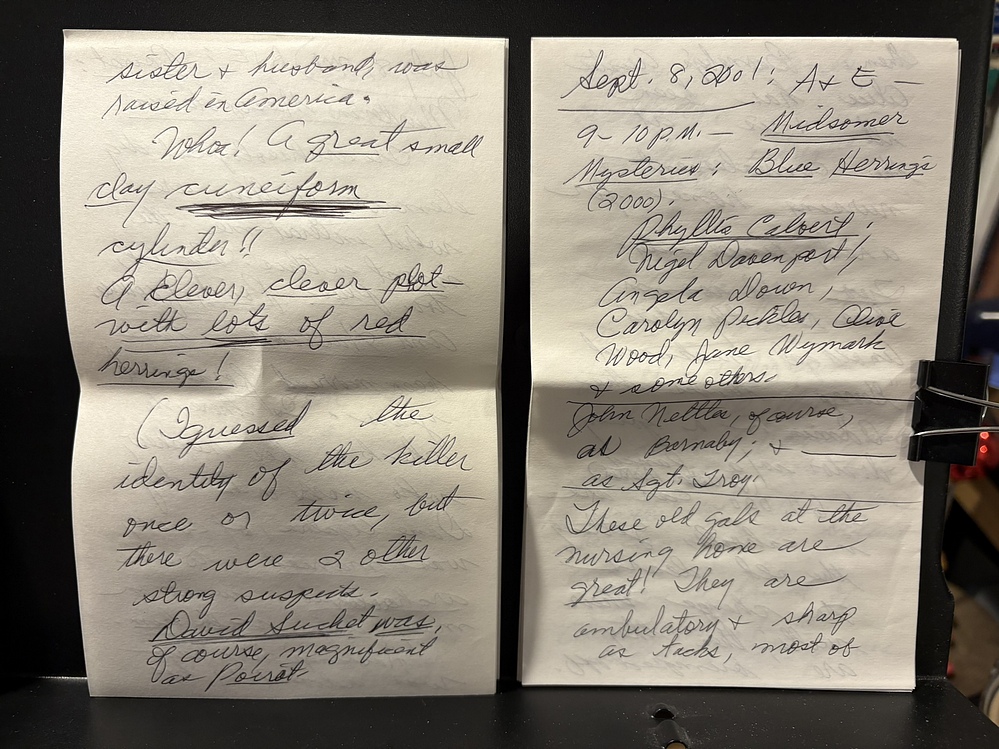 sister & husband, was
raised in America.
Whoa! A great small
clay cuneiform
cylinder!!
A Clever, clever plot-
with lots of red
herrings!
(I guessed the
identity of the killer
once or twice, but
there were 2 other
strong suspects.
David Suchet was,
of course, magnificent
as Poirot.
Sept. 8, 2001: A & E —
9-10 P.M. — Midsomer
Mysteries: Blue Herrings
(2000).
Phyllis Calvert,
Nigel Davenport!,
Angela Down,
Carolyn Pickles, Olive
Wood, Jane Wymark
& some others.
John Nettles, of course,
as Barnaby; & ______
as Sgt. Troy.
These old gals at the
nursing home are
great! They are
ambulatory & sharp
as tacks, most of